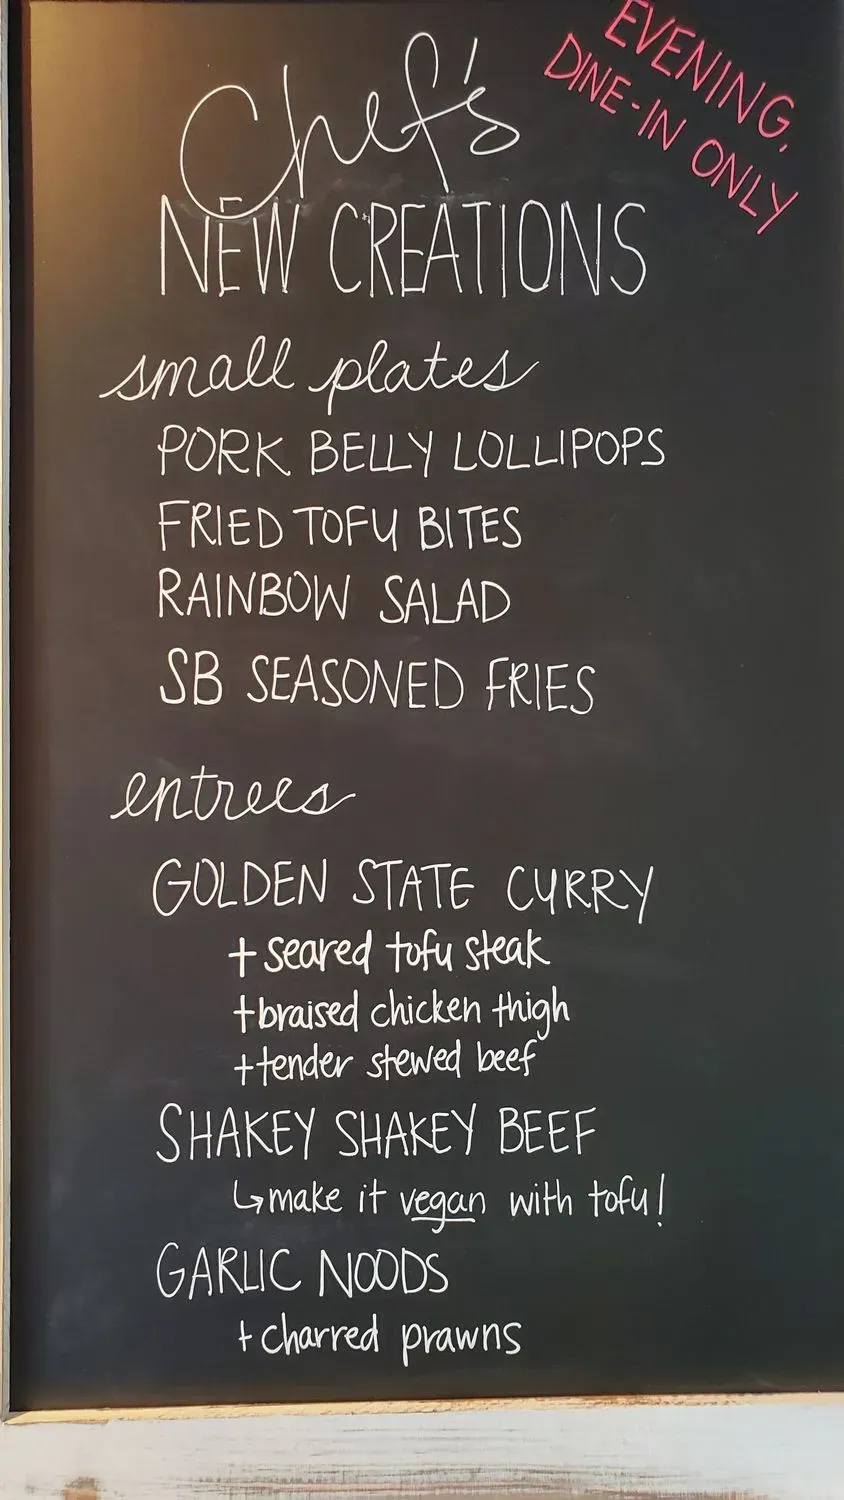 EVENING,
DINE-IN ONLY
Chef's
NEW CREATIONS
small plates
PORK BELLY LOLLIPOPS
FRIED TOFU BITES
RAINBOW SALAD
SB SEASONED FRIES
entrees
GOLDEN STATE CURRY
+ seared tofu steak
+ braised chicken thigh
+ tender stewed beef
SHAKEY SHAKEY BEEF
↳ make it vegan with tofu!
GARLIC NOODS
+ charred prawns